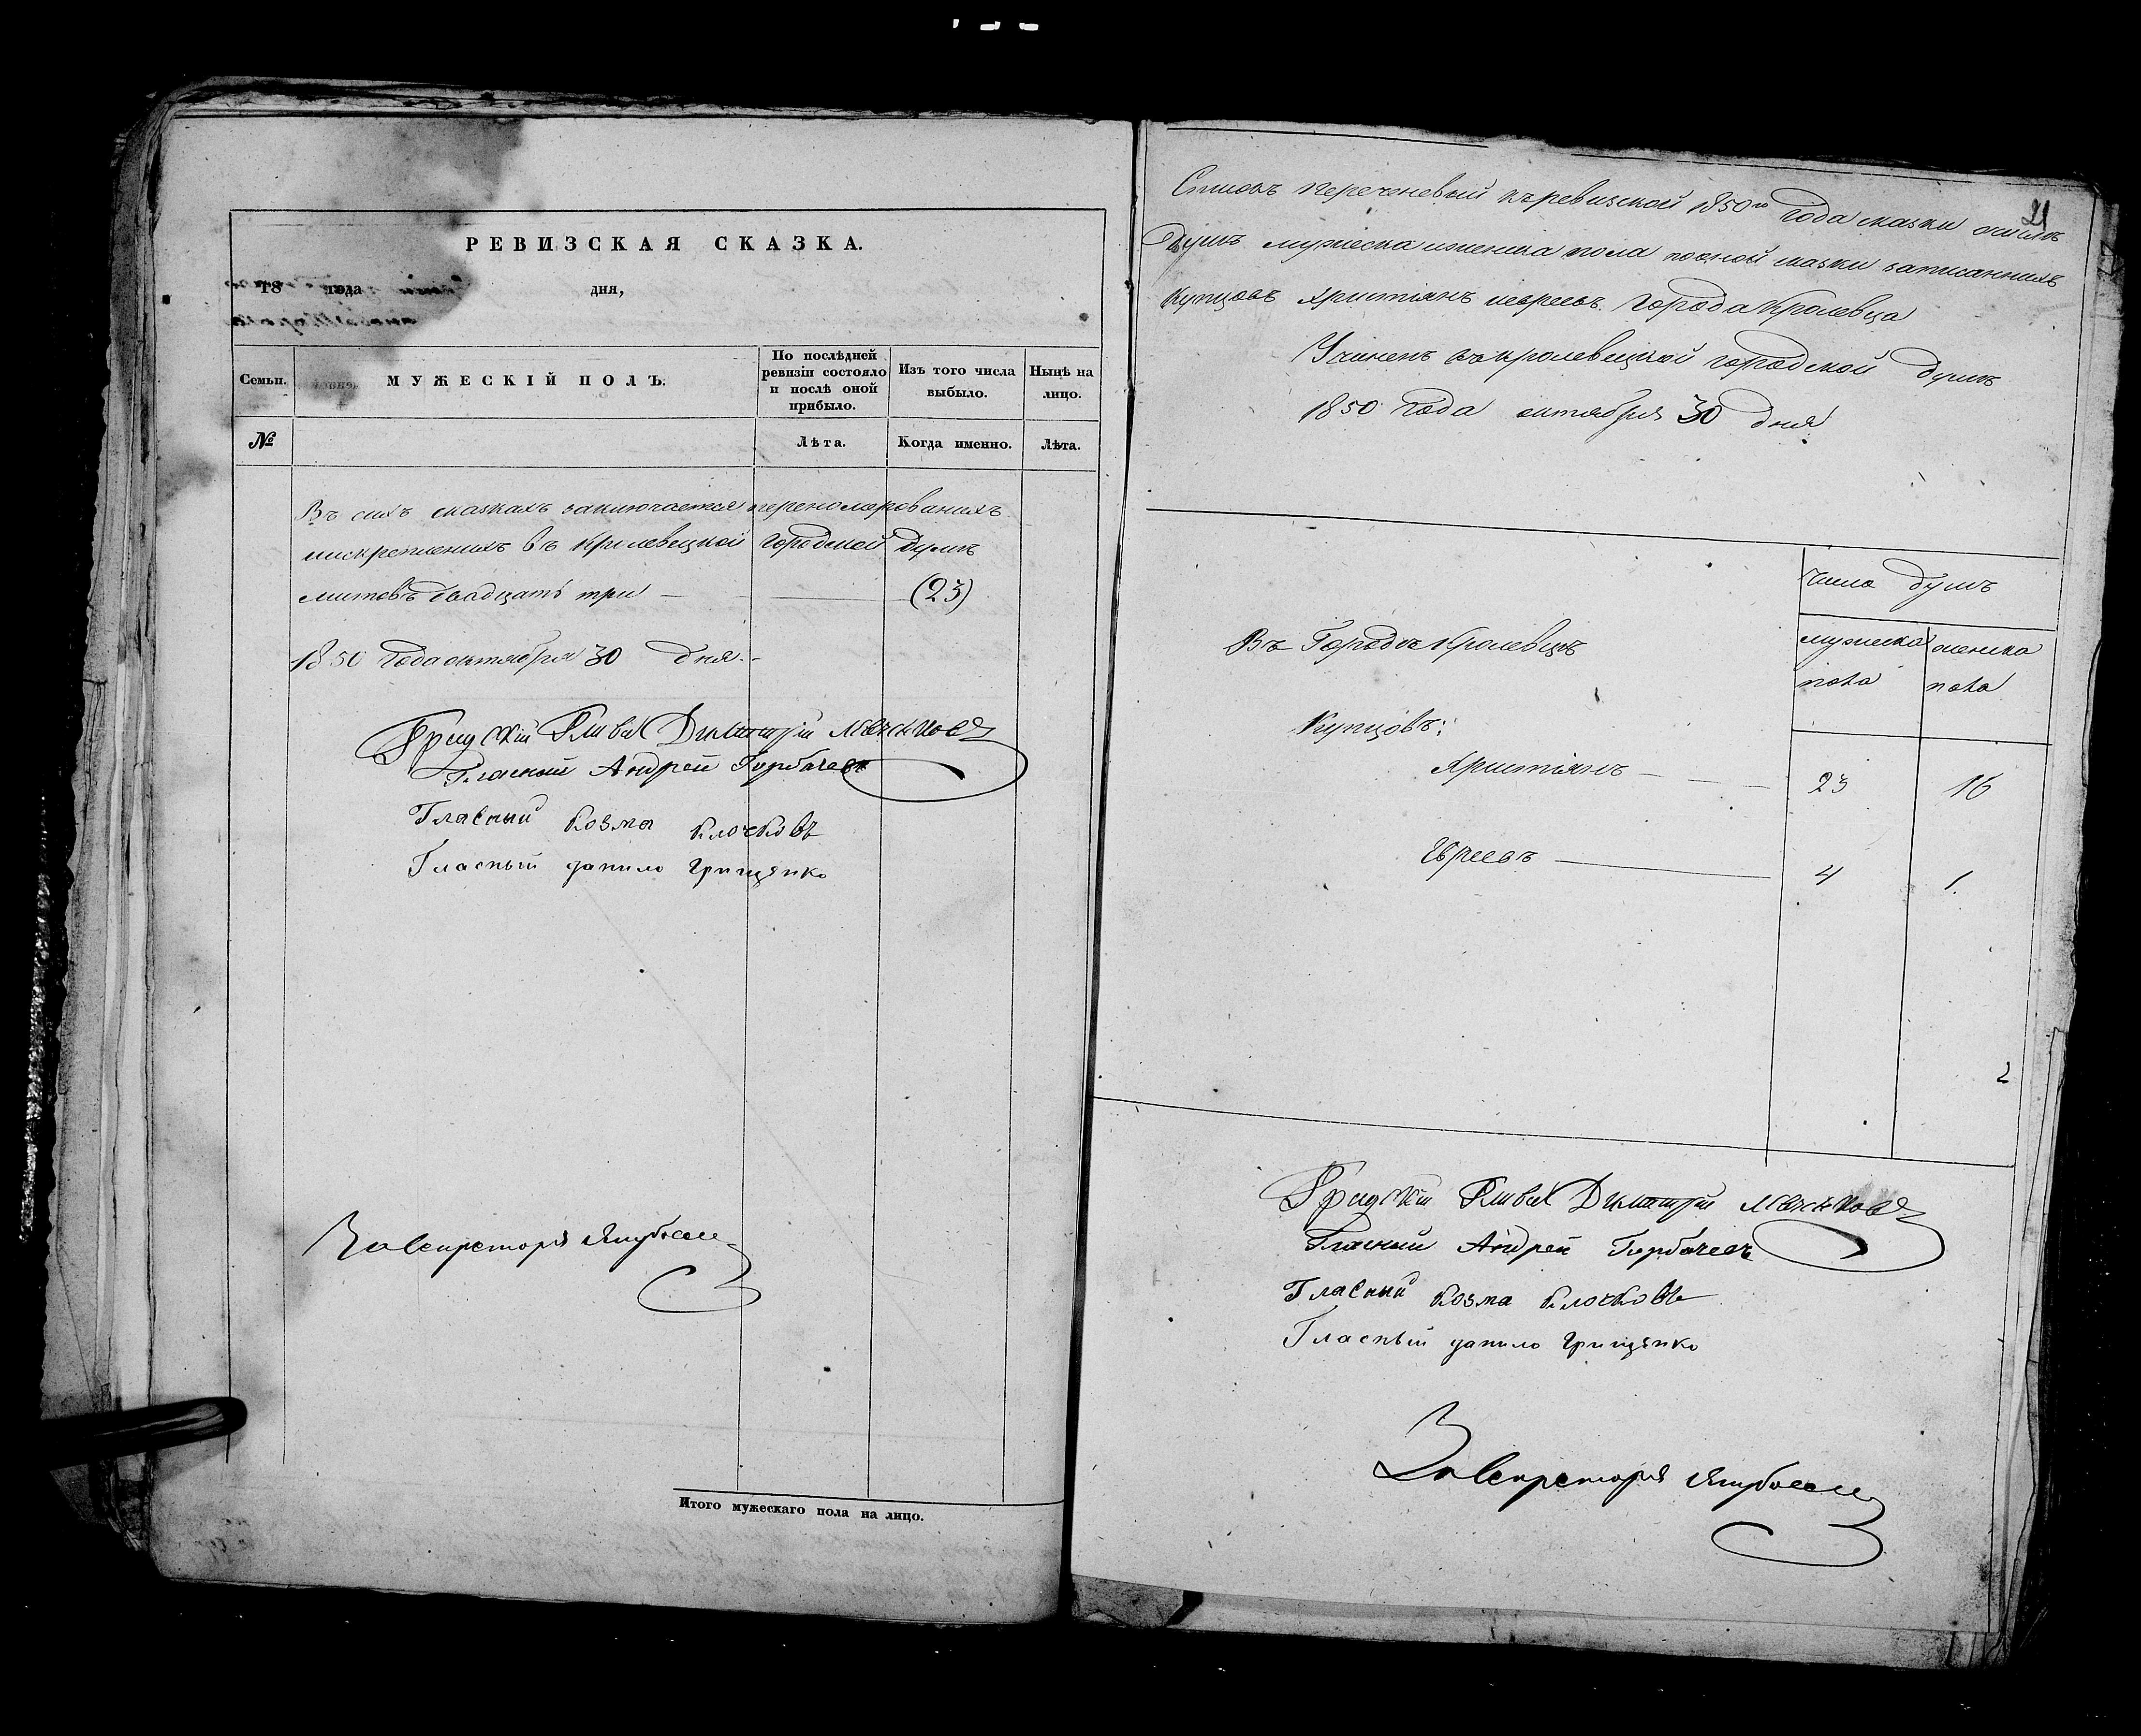 РЕВИЗСКАЯ СКАЗКА.
18 года дня,
Семьи. МУЖЕСКІЙ ПОЛЪ. По послѣдней ревизіи состояло и послѣ оной прибыло. Изъ того числа выбыло. Нынѣ на лицо.
№ Лѣта. Когда именно. Лѣта.
Въ сихъ сказкахъ заключается переномерованихъ
искрепленихъ въ Кролевецкой Городской Думѣ
листовъ двадцать три — (23)
1850 года октября 30 дня.
Градскій Глава Димитрій
Гласный Андрей Горбачевъ
Гласный Козма Клочковъ
Гласный данило Грищенко
За Секретаря
Итого мужескаго пола на лицо.
21
Списокъ перечневый къ ревизской 1850го года сказки о числѣ
Душъ мужеска и женска пола по оной сказки записанныхъ
Купцовъ Христіянъ и евреевъ Города Кролевца
Учиненъ въ Кролевецкой городской думѣ
1850 года октября 30 дня
Число душъ
Въ Городѣ Кролевцѣ мужеска пола женска пола
Купцовъ:
Христіянъ — — — 23 16
Евреевъ — 4 1.
2
Градскій Глава Димитрій
Гласный Андрей Горбачевъ
Гласный Козма Клочковъ
Гласный данило Грищенко
За Секретаря